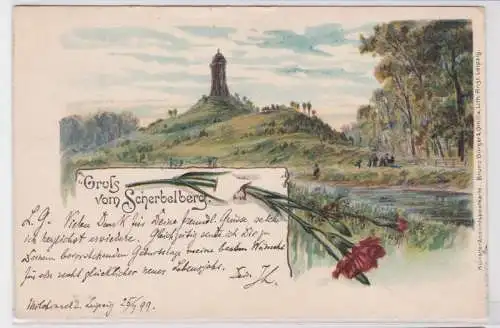 Gruß
vom Scherbelberg.
L. G. Vielen Dank für Deine freundl. Grüsse welche
ich herzlichst erwiedere. Gleichzeitig sende ich Dir zu
Deinem bevorstehenden Geburtstage meine besten Wünsche
für ein recht glückliches neues Lebensjahr.
Dein
Leipzig 25/5 99.
Künstler-Ansichtspostkarte. Bruno Bürger & Ottillie, Lith. Anst. Leipzig.